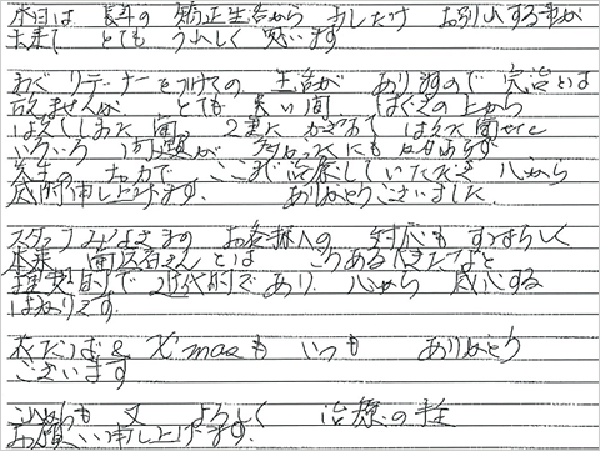 本日は 長年の 矯正生活から おしたけ お別れする事が
出来て とても うれしく 思います
まだ リテーナーをつけての 生活が あり ますので 完治とは
言えませんが とても 長い間 はぐきの上から
はえてしまった 歯、 2まい かさなって はえた歯など
いろいろ 問題が 多かったにもかかわらず
先生の お力で ここまで治療していただき 心から
感謝申し上げます。 ありがとうございました。
スタッフみなさまの お客様への 対応も すばらしく
本来 歯医者さん とは こうあるべきだなと
模範的で 近代的であり、 心から 感心する
ばかりです。
花たば & X'masも いつも ありがとう
ございます
これからも 又 よろしく 治療の程
お願い申し上げます。